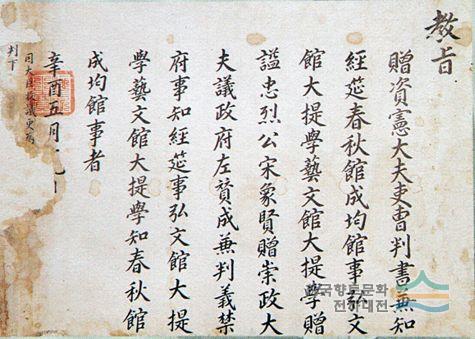 教旨
贈資憲大夫吏曹判書兼知
經筵春秋館成均館事弘文
館大提學藝文館大提學贈
謚忠烈公宋象賢贈崇政大
夫議政府左贊成兼判義禁
府事知經筵事弘文館大提
學藝文館大提學知春秋館
成均館事者
辛酉五月
因大臣獻議更爲
判下
한국향토문화
전자대전